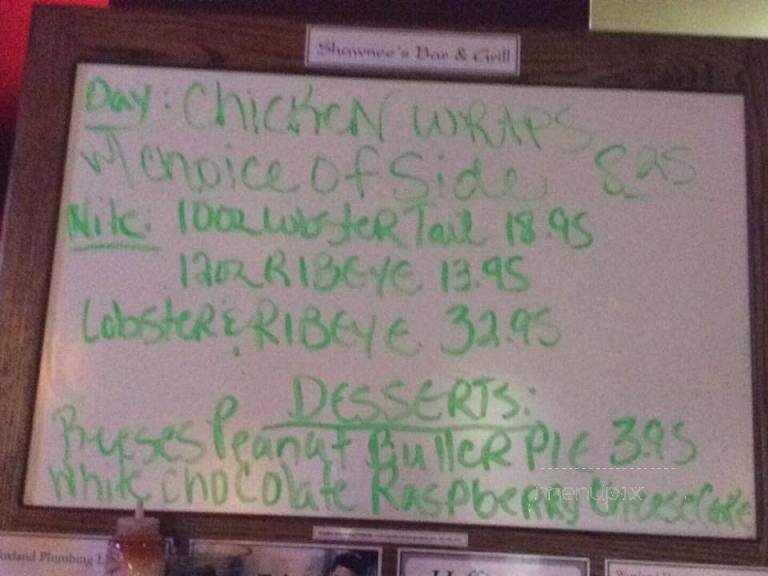 Shawnee's Bar & Grill
Day: Chicken WRAPS
w/ choice of Side 8.25
Nite: 10oz Lobster Tail 18.95
12oz RIBEYE 13.95
Lobster & RIBEYE 32.95
DESSERTS:
Reeses Peanut Butter PIE 3.95
White Chocolate Raspberry Cheesecake
menupix
Plumbing